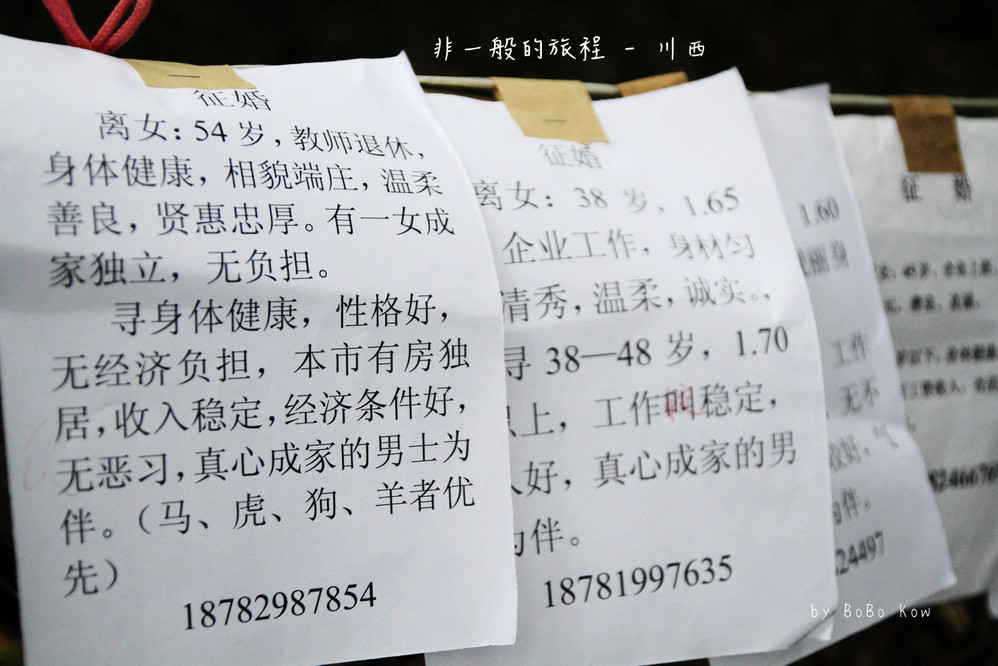 非一般的旅程 - 川西
征婚
离女：54岁，教师退休，
身体健康，相貌端庄，温柔
善良，贤惠忠厚。有一女成
家独立，无负担。
寻身体健康，性格好，
无经济负担，本市有房独
居，收入稳定，经济条件好，
无恶习，真心成家的男士为
伴。（马、虎、狗、羊者优
先）
18782987854
征婚
离女：38 岁，1.65
企业工作，身材匀
清秀，温柔，诚实。，
寻 38—48 岁，1.70
以上，工作 稳定，
人好，真心成家的男
为伴。
18781997635
1.60
丽身
工作
，无不
好，气
伴。
24497
征 婚
by BoBo Kow